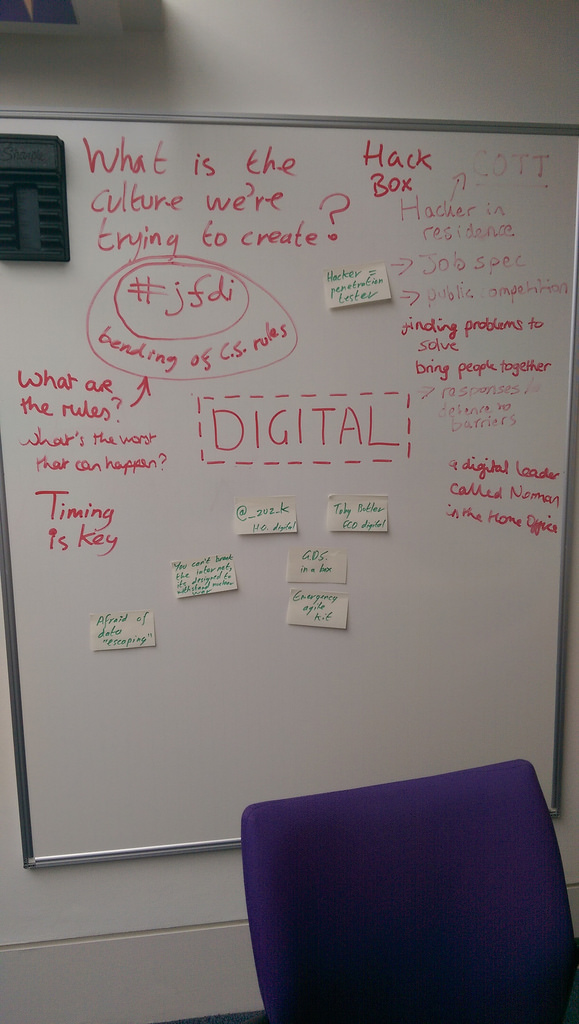 What is the
culture we're
trying to create?
#jfdi
bending of C.S. rules
What are
the rules?
What's the worst
that can happen?
Timing
is key
Hack
Box
COTT
Hacker in
residence
→ Job spec
→ public competition
finding problems to
solve
bring people together
→ responses/
barriers
a digital leader
called Norman
in the Home Office
Hacker =
penetration
tester
DIGITAL
@_zuz_k
H.O. digital
Toby Butler
FCO digital
You can't break
the internet,
its designed to
withstand nuclear
war
G.D.S.
in a box
Emergency
agile
kit
Afraid of
data
"escaping"